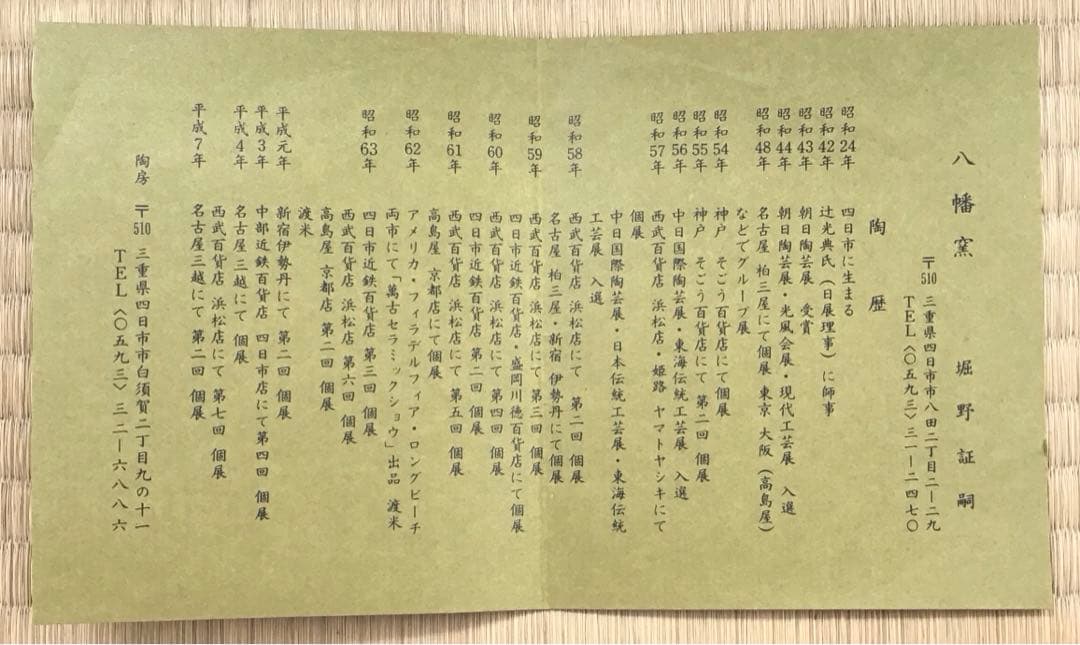 八幡窯 堀野証嗣
〒510 三重県四日市市八田二丁目二ー二九
TEL〈〇五九三〉三一ー二四七〇
陶歴
昭和24年 四日市に生まる
昭和42年 辻光典氏（日展理事）に師事
昭和43年 朝日陶芸展 受賞
昭和44年 朝日陶芸展・光風会展・現代工芸展 入選
昭和48年 名古屋 柏三屋にて個展 東京 大阪（高島屋）
などでグループ展
昭和54年 神戸 そごう百貨店にて個展
昭和55年 神戸 そごう百貨店にて 第二回 個展
昭和56年 中日国際陶芸展・東海伝統工芸展 入選
昭和57年 西武百貨店 浜松店・姫路 ヤマトヤシキにて
個展
中日国際陶芸展・日本伝統工芸展・東海伝統
工芸展 入選
昭和58年 西武百貨店 浜松店にて 第二回 個展
名古屋 柏三屋・新宿 伊勢丹にて個展
昭和59年 西武百貨店 浜松店にて 第三回 個展
四日市近鉄百貨店・盛岡川徳百貨店にて個展
昭和60年 西武百貨店 浜松店にて 第四回 個展
四日市近鉄百貨店 第二回 個展
昭和61年 西武百貨店 浜松店にて 第五回 個展
高島屋 京都店にて個展
昭和62年 アメリカ・フィラデルフィア・ロングビーチ
両市にて「萬古セラミックショウ」出品 渡米
四日市近鉄百貨店 第三回 個展
昭和63年 西武百貨店 浜松店 第六回 個展
高島屋 京都店 第二回 個展
渡米
平成元年 新宿伊勢丹にて 第二回 個展
平成3年 中部近鉄百貨店 四日市店にて第四回 個展
平成4年 名古屋三越にて 個展
西武百貨店 浜松店にて 第七回 個展
平成7年 名古屋三越にて 第二回 個展
陶房 〒510 三重県四日市市白須賀二丁目九の十一
TEL〈〇五九三〉三二ー六八八六